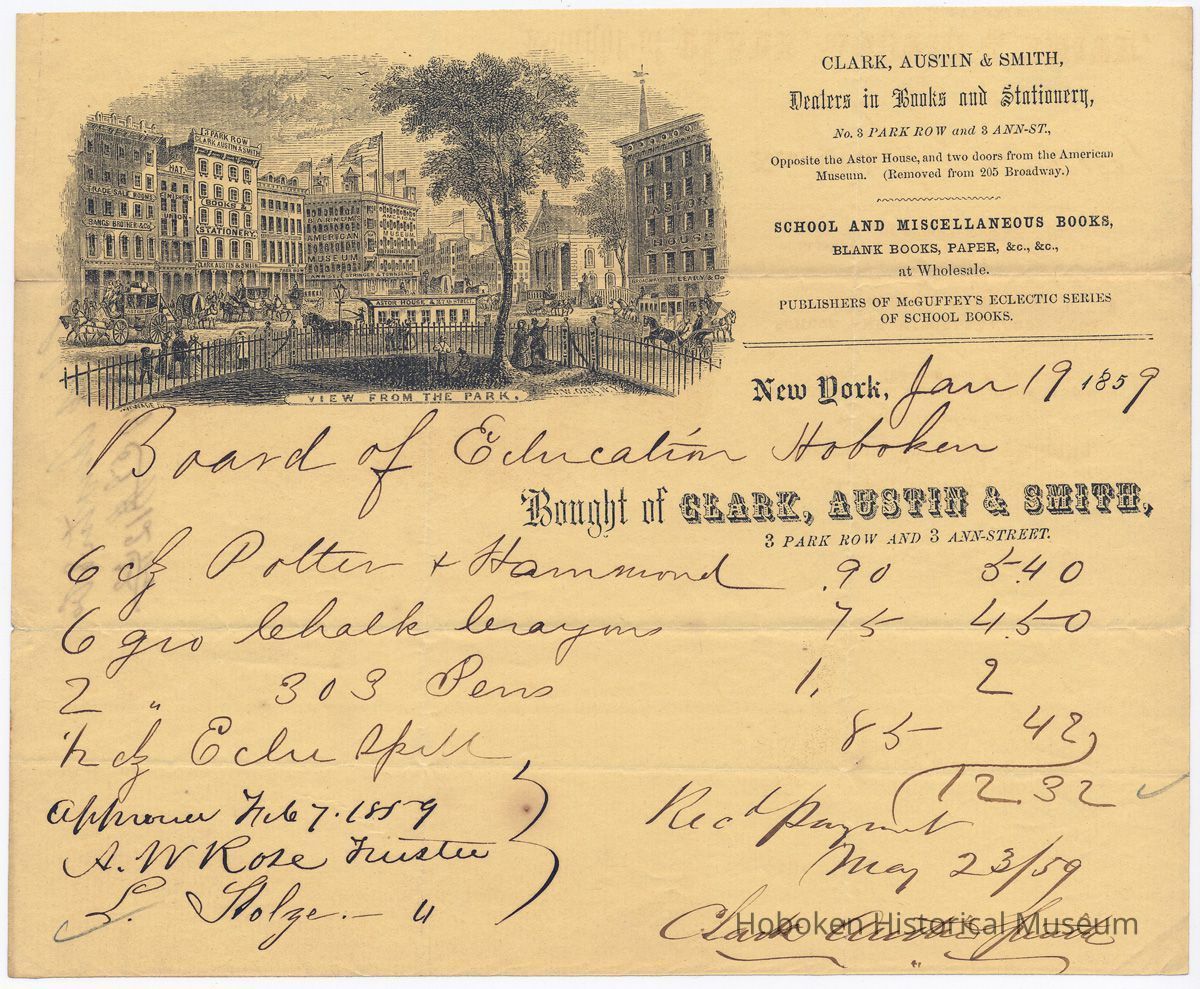 3 PARK ROW
CLARK AUSTIN & SMITH
HAT
BOOKS &
STATIONERY
TRADE SALE ROOMS
BANGS BROTHER & CO
UNION
CLARK AUSTIN & SMITH
BARNUM'S
AMERICAN
MUSEUM
ASTOR
HOUSE
LEARY & Co
ASTOR HOUSE &
VIEW FROM THE PARK.
CLARK, AUSTIN & SMITH,
Dealers in Books and Stationery,
No. 3 PARK ROW and 3 ANN-ST.,
Opposite the Astor House, and two doors from the American
Museum. (Removed from 205 Broadway.)
SCHOOL AND MISCELLANEOUS BOOKS,
BLANK BOOKS, PAPER, &c., &c.,
at Wholesale.
PUBLISHERS OF McGUFFEY'S ECLECTIC SERIES
OF SCHOOL BOOKS.
New York, Jan 19 1859
Board of Education Hoboken
Bought of CLARK, AUSTIN & SMITH,
3 PARK ROW AND 3 ANN-STREET.
6 dz Potter & Hammond .90 5.40
6 gro Chalk Crayons 75 4.50
2 " 303 Pens 1. 2
1/2 dz Eclec Spell 85 42
12.32
Approved Feb 7. 1859
A. W Rose Trustee
L. Stolze. — "
Recd Payment
May 23/59
Clark Austin & Smith
Hoboken Historical Museum